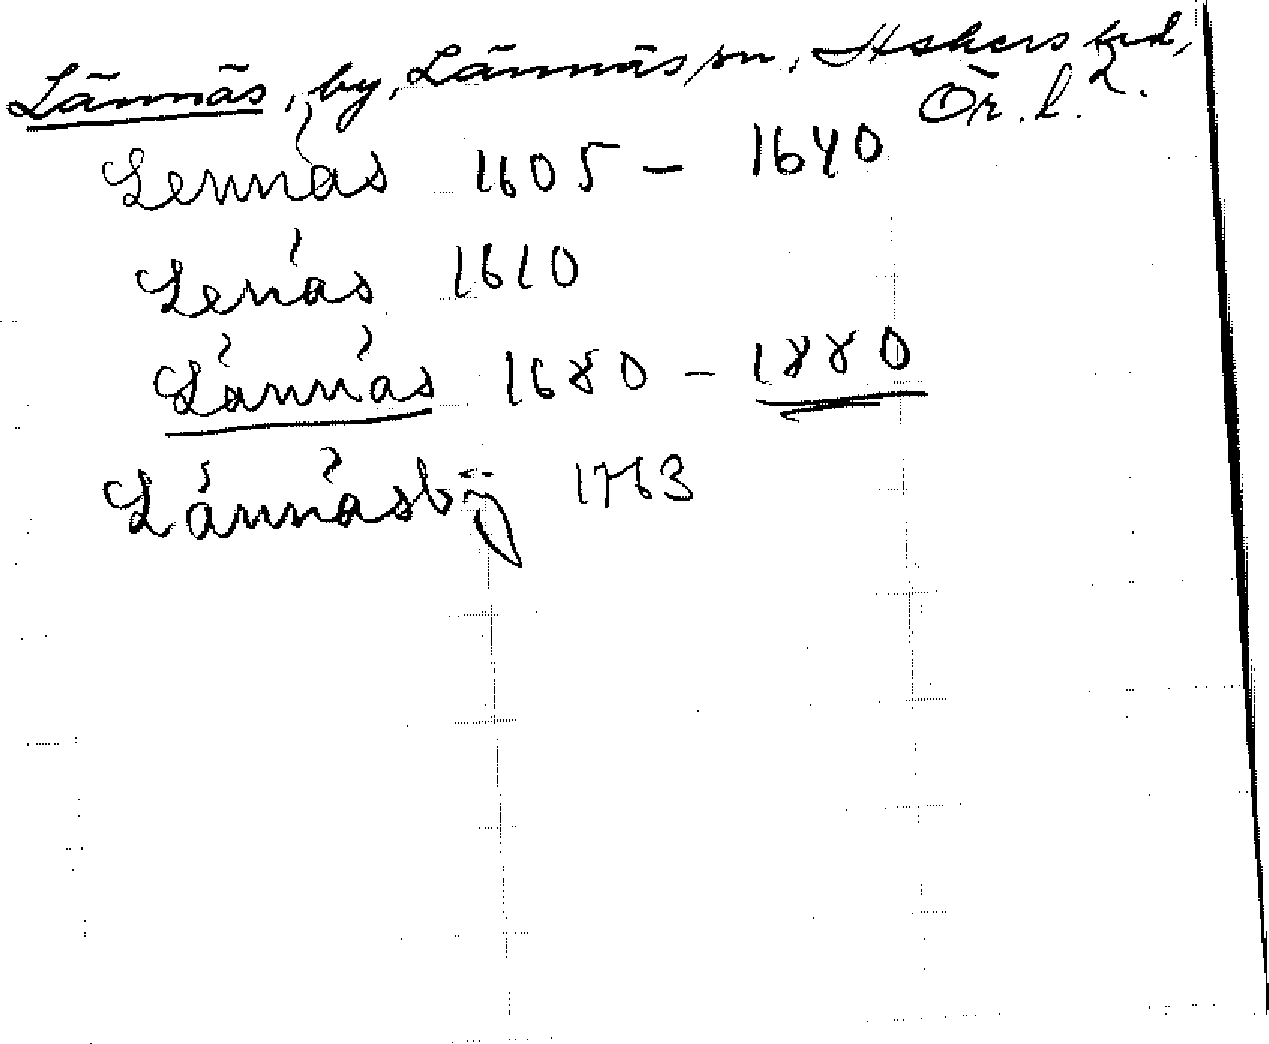 Lännäs, by, Lännäs sn, Askers hd,
Ör. l.
Lennäs 1605 - 1640
Lenäs 1610
Lännäs 1680 - 1880
Lännäsbÿ 1763